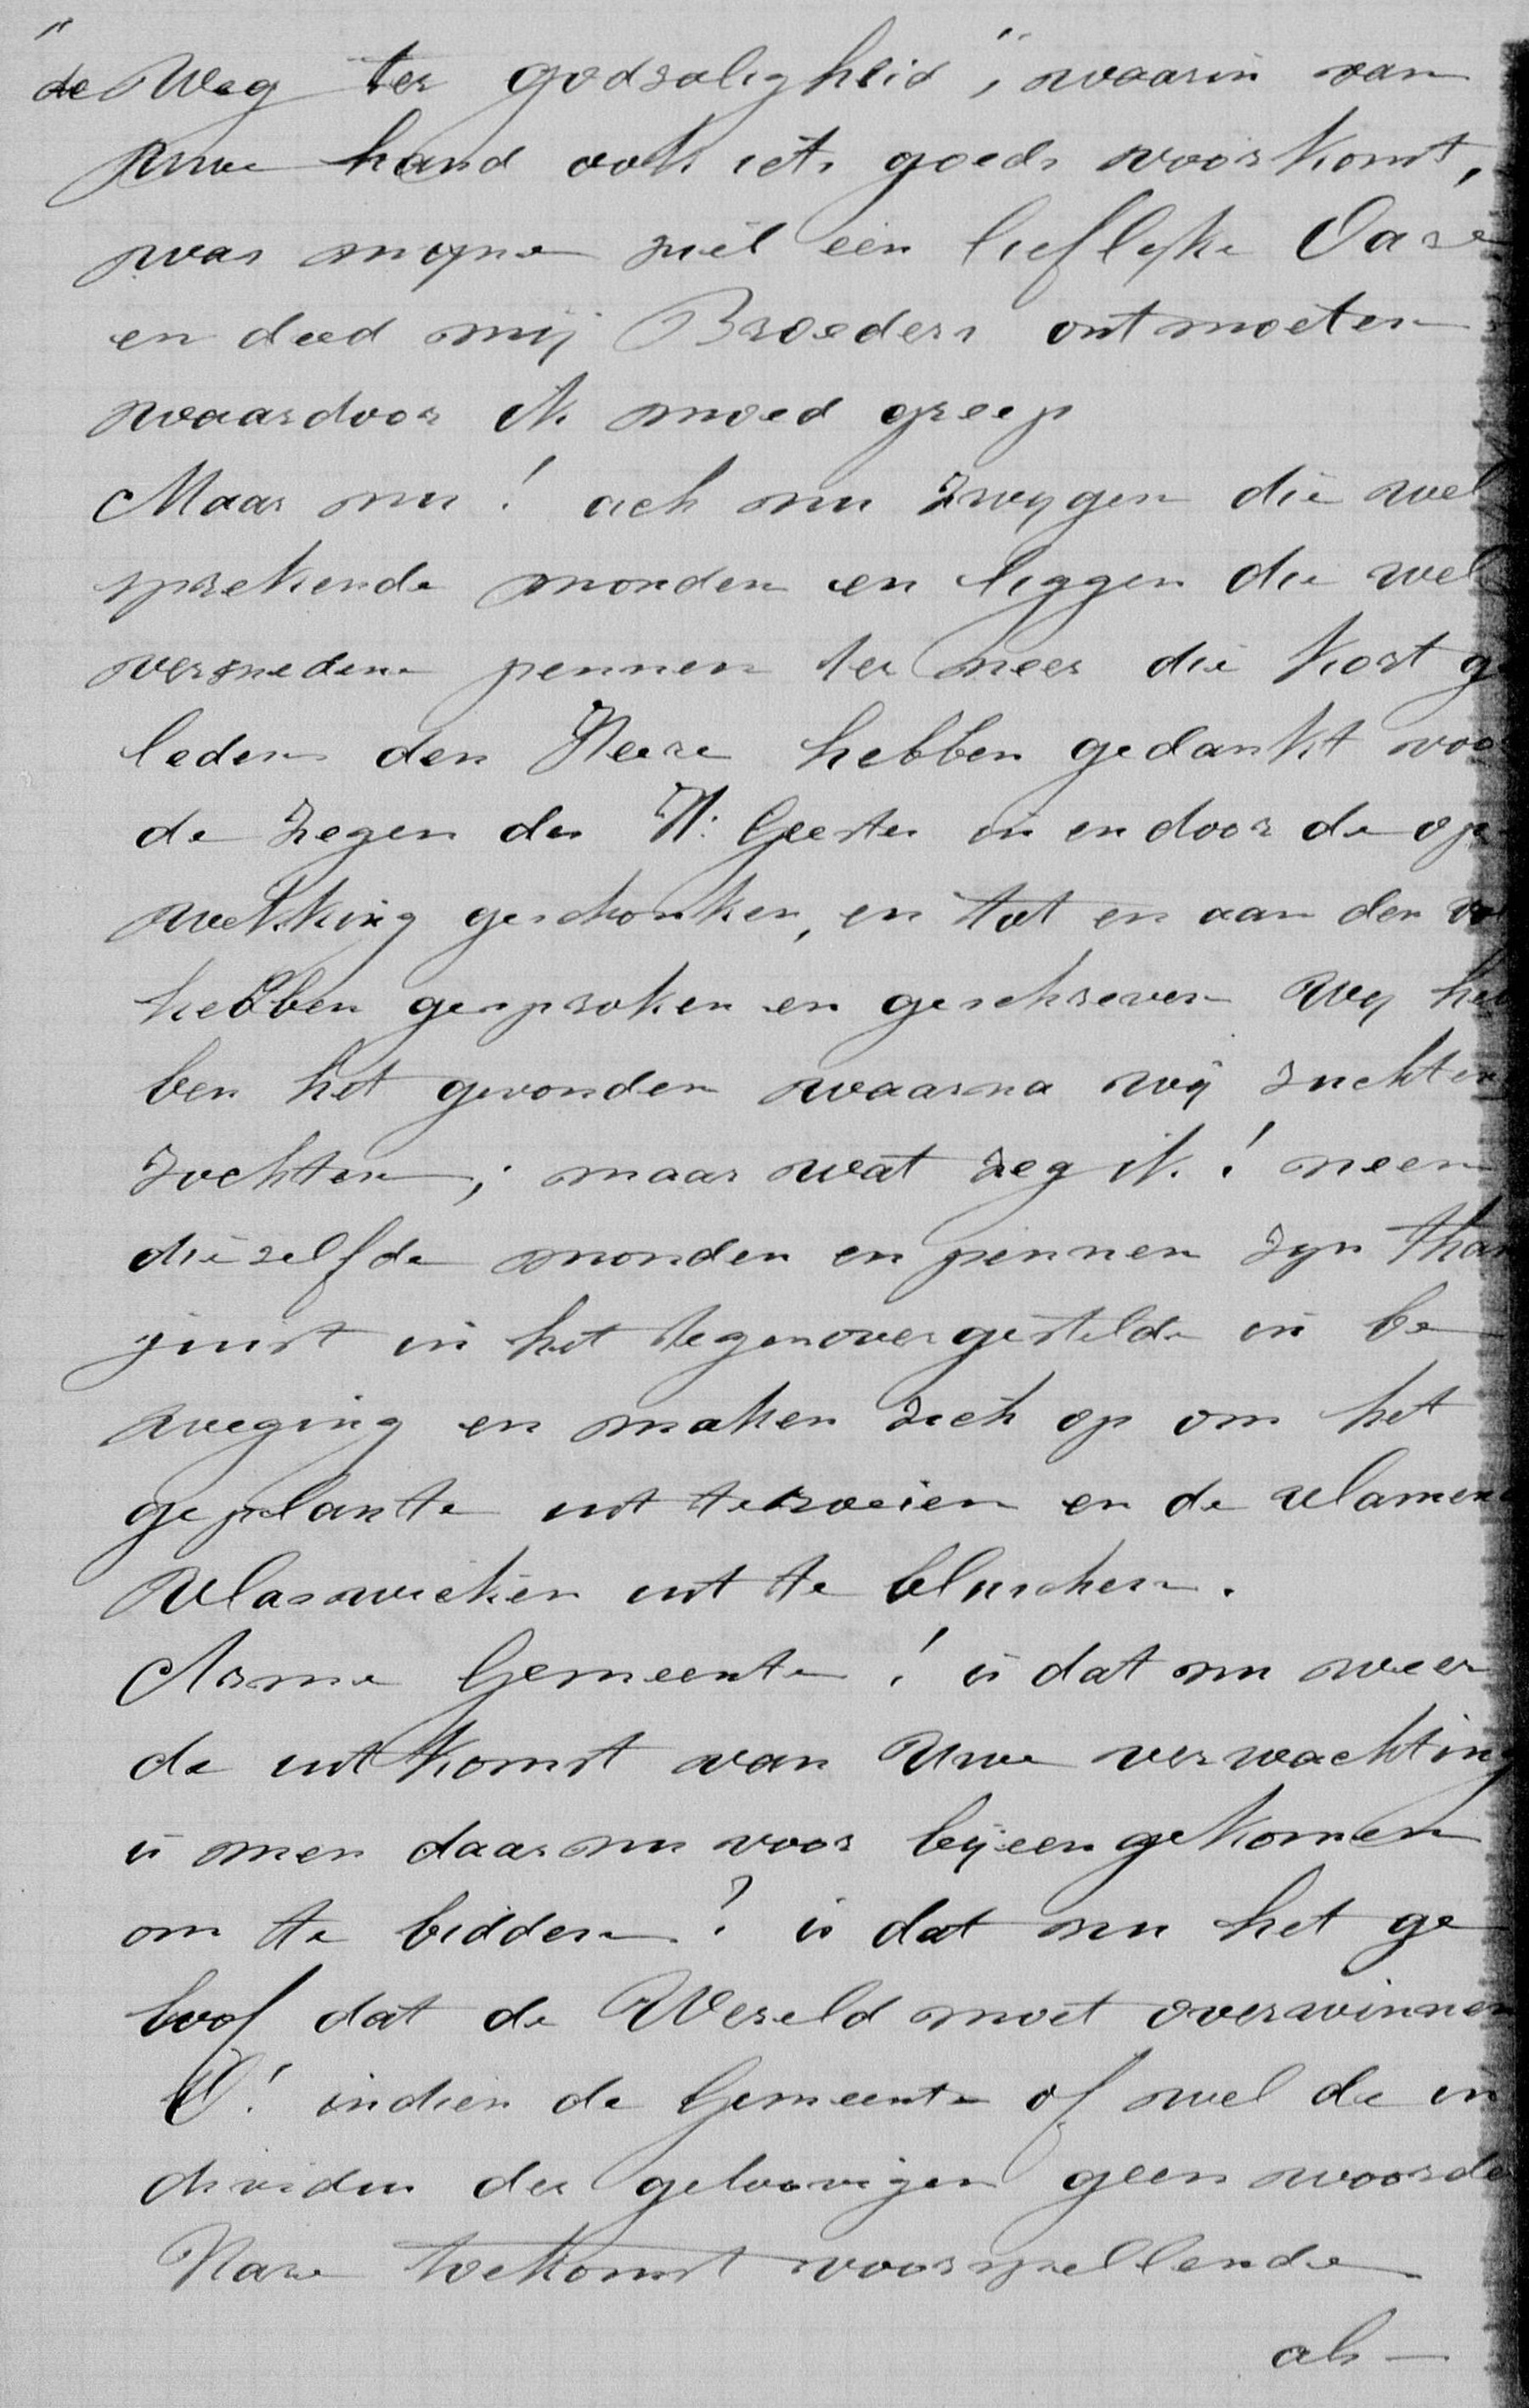 "de Weg ter godzaligheid", waarin van
Uwe hand ook iets goeds voorkomt,
was mijne ziel een lieflijke Oase
en deed mij Broeders ontmoeten
waardoor ik moed greep
Maar nu! ach nu zwijgen die wel
sprekende monden en liggen die wel
versnedene pennen ter neer die kort ge
leden den Heere hebben gedankt voor
de zegen des H: Geestes in en door de op
wekking geschonken, en tot en aan den
hebben gesproken en geschreven Wij heb
ben het gevonden waarna wij zuchten
zochten; maar wat zeg ik! neen
diezelfde monden en pennen zijn thans
juist in het tegenovergestelde in be
weging en maken zich op om het
geplante uit te roeien en de
vlaswieken uit te blusschen.
Arme Gemeente! is dat nu weer
de uitkomst van Uwe verwachting
is men daar nu voor bijeengekomen
om te bidden? is dat nu het ge
loof dat de Wereld moet overwinnen
O! indien de Gemeente of wel de in
dividus der geloovigen geen woorden
Hare toekomst voorspellende
als —